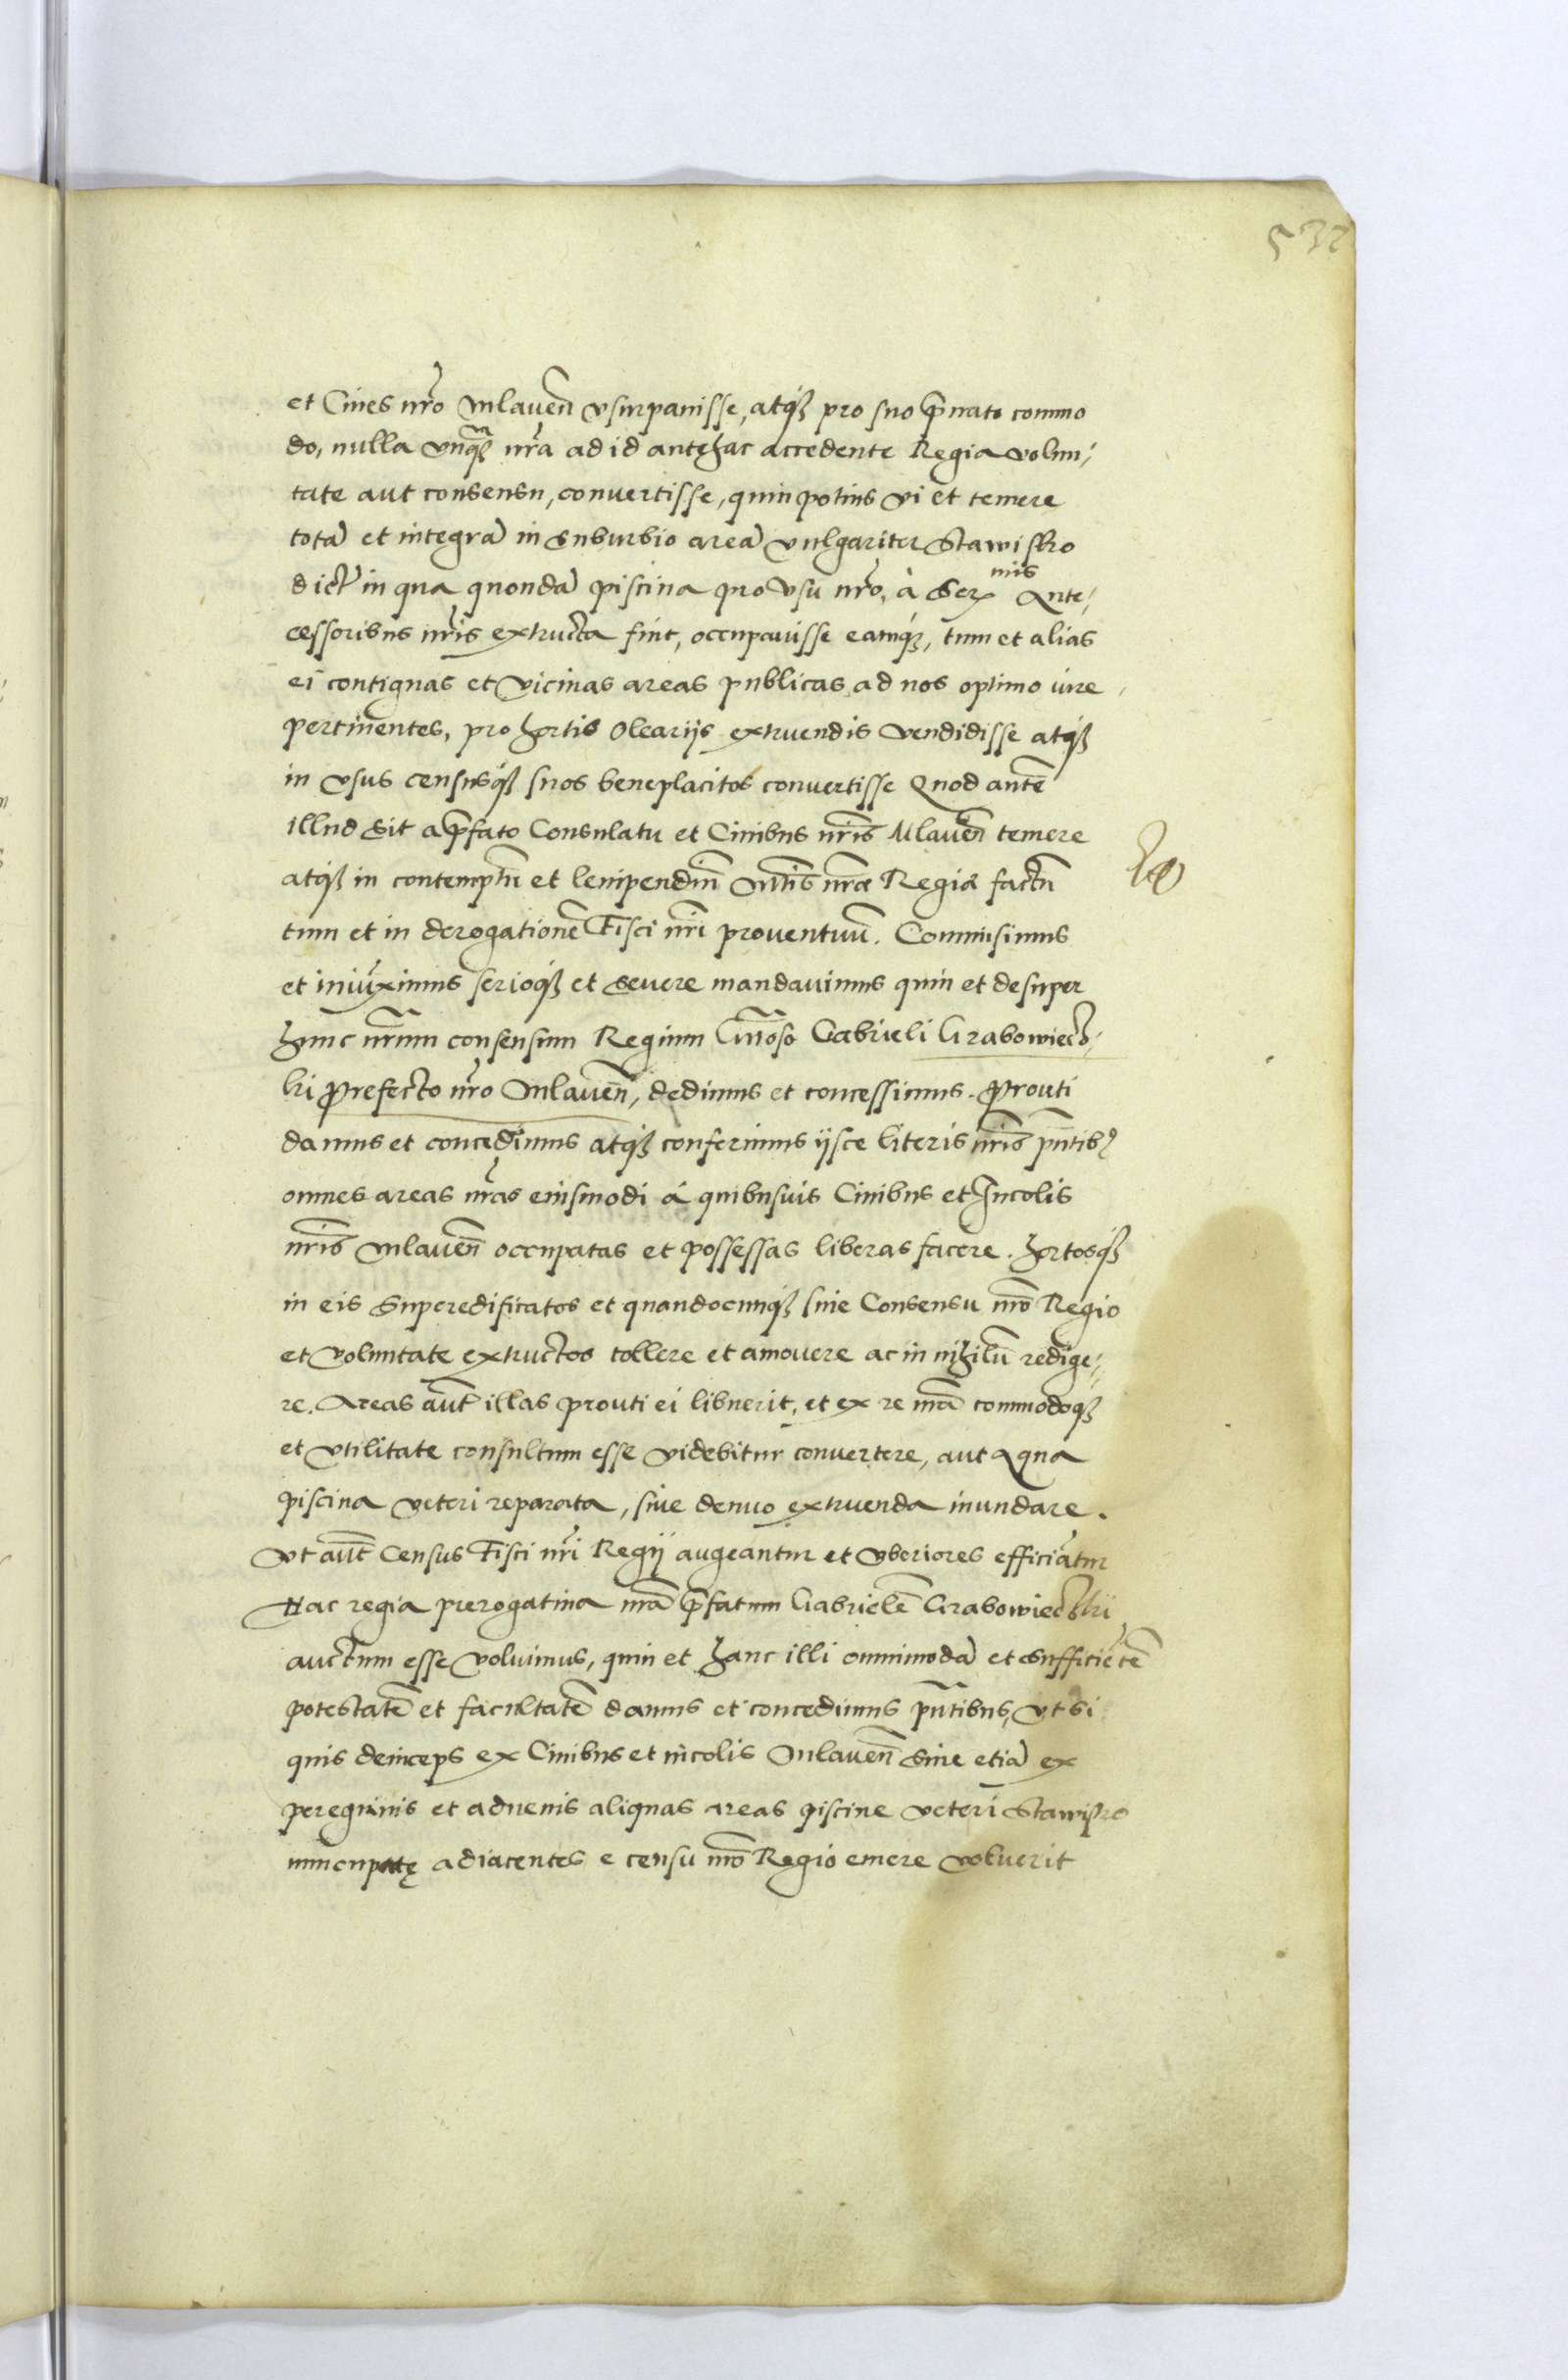 532
et Ciues nrõ Mlaueñ vsurpauisse, atq₃ pro suo p̃uato commo
do, nulla vnq̃₃ nrã ad id antehac accedente Regia volun-
tate aut consensu, convertisse, quin potius vi et temere
totã et integrã in suburbio areã vulgariter Stawisko
dict̃ in qua quondã piscina pro vsu nrõ, à Ser mis Ante-
cessoribus nrĩs extructa fuit, occupauisse eamq₃, tum et alias
ei contiguas et vicinas areas publicas ad nos optimo iure
pertinentes, pro hortis olearijs extruendis vendidisse atq₃
in vsus censusq₃ suos beneplacitos convertisse Quod autẽ
illud sit a p̃fato Consulatu et Ciuibus nrĩs Mlaueñ temere
atq₃ in contemptũ et leuipendiũ Mtĩs nrãe Regiæ factũ
tum et in derogationẽ Fisci nrĩ prouentuũ. Commisimus
et iniũximus serioq₃ et severe mandauimus quin et desuper
hunc nrũm consensum Regium Gñoso Gabrieli Grabowiecz-
ki Prefecto nrõ Mlaueñ, dedimus et concessimus. Prouti
damus et concedimus atq₃ conferimus ijsce literis nrĩs pñtib₉
omnes areas nrãs eiusmodi á quibusuis Ciuibus et Incolis
nrĩs Mlaueñ occupatas et possessas liberas facere. hortosq₃
in eis superedificatos et quandocunq₃ sine Consensu nrõ Regio
et voluntate extructos tollere et amouere ac in nihilũ redige-
re. Areas aũt illas prouti ei libuerit, et ex re nrã commodoq₃
et vtilitate consultum esse videbitur convertere, aut aqua
piscina veteri reparata, siue denuo extruenda inundare.
Vt aũt Census Fisci nrĩ Regij augeantur et vberiores efficiãtur
Hac regia prerogatiua nrã p̃fatum Gabrielẽ Grabowieczki
auctum esse voluimus, quin et hanc illi omnimodã et sufficiẽtẽ
potestatẽ et facultatẽ damus et concedimus pñtibus, vt si
quis deinceps ex Ciuibus et incolis Mlaueñ siue etiã ex
peregrinis et aduenis aliquas areas piscine veteri Stawisko
nuncupatę adiacentes e censu nrõ Regio emere voluerit